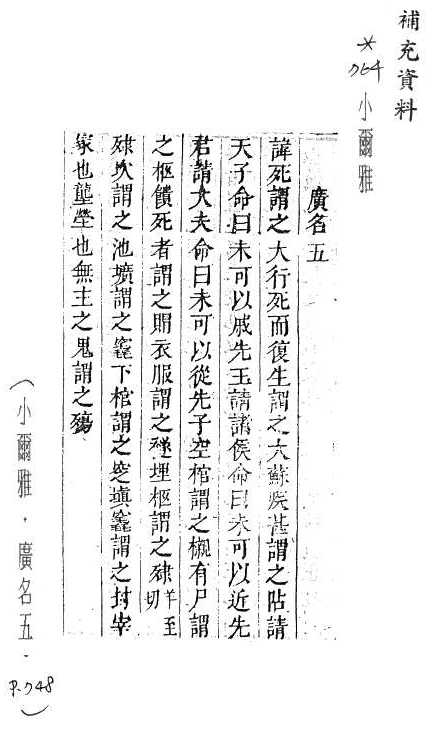 補充資料
* 764 小爾雅
廣名五
諱死謂之大行死而復生謂之大蘇疾甚謂之阽請
天子命曰未可以戚先王請諸侯命曰未可以近先
君請大夫命曰未可以從先子空棺謂之櫬有尸謂
之柩饋死者謂之賵衣服謂之襚埋柩謂之殔羊至切
殔坎謂之池壙謂之竁下棺謂之窆塡竁謂之封宰
冢也壟塋也無主之鬼謂之殤
(小爾雅．廣名五．P.748)